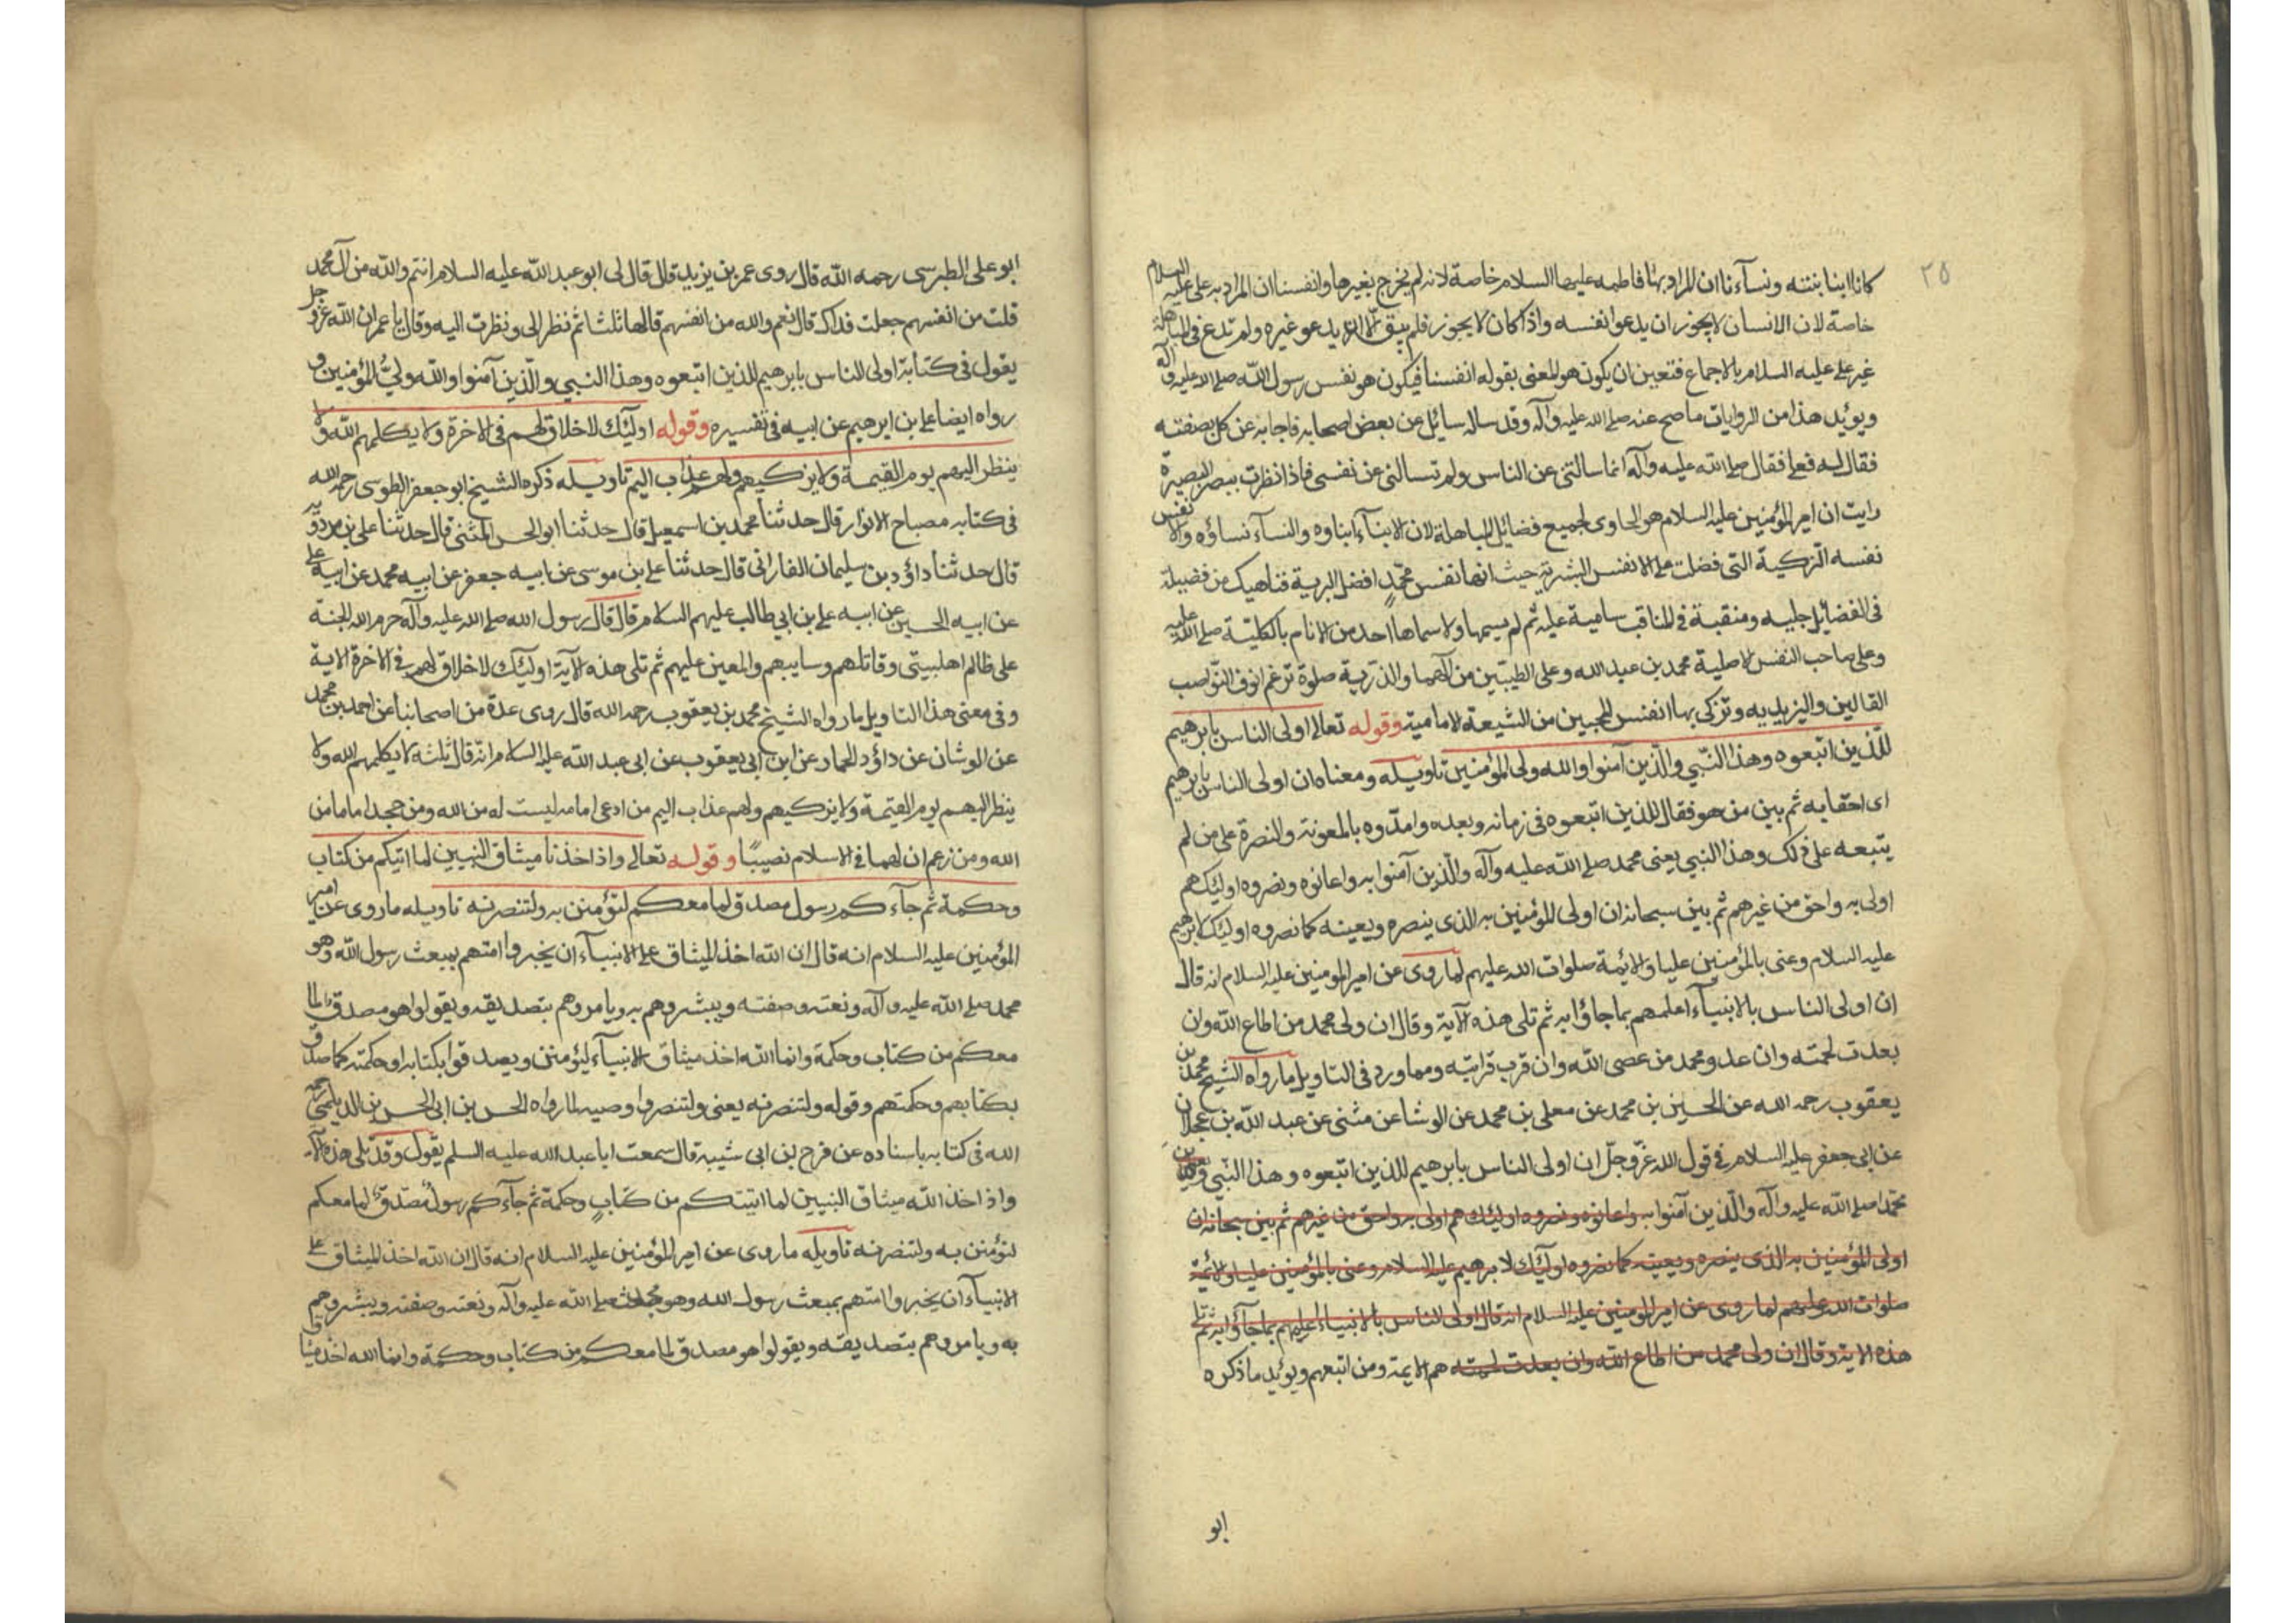 ٢٥
كانا ابنا بنته ونسآءنا ان المراد بهٰا فاطمه عليها السلام خاصة لانه لم يخرج بغيرها وانفسنا ان المراد به على عليه السلام
خاصة لان الانسان لا يجوز ان يدعو انفسه واذا كان لا يجوز فلم يبق الّا ان يدعو غيره ولم تدع فى المباهلة
غير على عليه السلام بالاجماع فتعين ان يكون هو المعنى بقوله انفسنا فيكون هو نفس رسول اللّه صلى الله عليه وآله
ويويد هذا من الروايات ما صح عنه صلى الله عليه وآله وقد ساله سايل عن بعض اصحابه فاجابه عن كل بصفته
فقال له فعلى فقال صلى الله عليه وآله انما سالتنى عن الناس ولم تسالنى عن نفسى فاذا نظرت ببصر البصيرة
رايت ان امير المؤمنين عليه السلام هو الحاوى لجميع فضائل المباهلة لان الابنآء ابناوه والنسآء نساؤه والانفس
نفسه الزكية التى فضلت على الانفس البشرية حيث انها نفس محمّدٍ افضل البرية فناهيك من فضيلة
فى الفضايل جليه ومنقبة فى المناقب سامية عليه ثم لم يسمها ولا سماها احد من الانام بالكليّة صلى الله عليه
وعلى صاحب النفس الاصلية محمد بن عبد الله وعلى الطيبّين من آلهما والذرية صلوة ترغم انوف النّواصب
القالين واليزيديه وتزكى بها انفس المحبين من الشيعة الامامية وقوله تعالى اولى الناس بابرهيم
للّذين اتّبعوه وهذا النّبي والّذين آمنوا والله ولى المؤمنين تاويله ومعناه ان اولى الناس بابرهيم
اى احقابه ثم بين من هو فقال للذين اتبعوه فى زمانه وبعده وامدّوه بالمعونة والنصرة على من لم
يتبعه على ذلك وهذا النبي يعنى محمد صلى اللّه عليه وآله والّذين آمنوا به واعانوه ونصروه اوليٓك هم
اولى به واحق من غيرهم ثم بين سبحانه ان اولى المؤمنين به الذى ينصره ويعينه كما نصروه اوليٓك لابرهيم
عليه السلام وعنى بالمؤمنين عليا والايمة صلوات الله عليهم لما روى عن امير المومنين عليه السلام انه قال
ان اولى الناس بالانبيآء اعلمهم بما جاؤا به ثم تلى هذه الآية وقال ان ولى محمد من اطاع اللّه وان
بعدت لحمته وان عدو محمد من عصى اللّه وان قرب قرابته ومما ورد فى التاويل ما رواه الشيخ محمد بن
يعقوب رحمه الله عن الحسين بن محمد عن معلى بن محمد عن الوشا عن مثنى عن عبد اللّه بن عجلان
عن ابى جعفر عليه السلام فى قول اللّه عزّ وجلّ ان اولى الناس بابرهيم للذين اتبعوه وهذا النّبي
محمّدا صلى اللّه عليه وآله والّذين آمنوا به واعانوه ونصروه اوليٓك هم اولى به واحق من غيرهم ثم بين سبحانه ان
اولى المؤمنين به الذى ينصره ويعينه كما نصروه اوليٓك لابرهيم عليه السلام وعنى بالمؤمنين عليا والائمة
صلوات الله عليهم لما روى عن امير المومنين عليه السلام انه قال اولى الناس بالانبياء اعلمهم بما جآؤا به ثم تلى
هذه الاية وقال ان ولى محمد من اطاع اللّه وان بعدت لحمته هم الايمة ومن اتبعهم ويويد ما ذكره
ابو
ابو على الطبرسى رحمه اللّه قال روى عمر بن يزيد قال قال لى ابو عبد اللّه عليه السلام انتم واللّه من آل محمد
قلت من انفسهم جعلت فداك قال نعم والله من انفسهم قالها ثلثا ثم نظر الى ونظرت اليه وقال يا عمر ان اللّه عز وجل
يقول فى كتابة اولى الناس بابرهيم للذين اتبعوه وهذا النبي والّذين آمنوا واللّه وليُّ المؤمنين و
رواه ايضا على بن ابرهيم عن ابيه فى تفسيره وقوله اوليٓك لا خلاق لهم فى الاخرة ولا يكلمهم اللّه ولا
ينظر اليهم يوم القيمة ولا يزكيهم ولهم عذاب اليم تاويله ذكره الشيخ ابو جعفر الطوسى رحمه الله
فى كتابه مصباح الانوار قال حدثنا محمد بن اسمعيل قال حدثنا ابو الحسن المثنى قال حدثنا على بن مردويه
قال حدثنا داؤد بن سليمان الفارانى قال حدثنا على بن موسى عن ابيه جعفر عن ابيه محمد عن ابيه على
عن ابيه الحسين عن ابيه على بن ابي طالب عليهم السلام قال قال رسول الله صلى الله عليه وآله حرم الله الجنة
على ظالم اهلبيتى وقاتلهم وسايبهم والمعين عليهم ثم تلى هذه الآية اوليٓك لا خلاق لهم فى الاخرة الاية
وفى معنى هذا التاويل ما رواه الشيخ محمد بن يعقوب رحمه الله قال روى عدة من اصحابنا عن احمد بن محمد
عن الوشان عن داؤد الحمار عن ابن ابى يعقوب عن ابى عبد اللّه عليه السلام انّه قال ثلثة لا يكلمهم الله ولا
ينظر اليهم يوم القيمة ولا يزكيهم ولهم عذاب اليم من ادعى امامه ليست له من الله ومن جحد اماما من
الله ومن زعم ان لهما فى الاسلام نصيبًا وقوله تعالى واذ اخذنا ميثاق النبيين لما اتيكم من كتاب
وحكمة ثم جآءكم رسول مصدق لما معكم لتؤمنن به ولتنصرنه تاويله ما روى عن امير
المؤمنين عليه السلام انه قال ان اللّه اخذ الميثاق على الانبيآء ان يخبروا امتهم بمبعث رسول اللّه وهو
محمد صلى اللّه عليه وآله ونعته وصفته ويبشروهم به ويامروهم بتصديقه ويقولوا هو مصدق لما
معكم من كتاب وحكمة وانما اللّه اخذ ميثاق الانبيآء ليؤمنن ويصدقوا بكتابه وحكمته كما صدق
بكتابهم وحكمتهم وقوله ولتنصرنه يعنى ولتنصروا وصيه لما رواه الحسن بن ابى الحسن الديلمى رحمه
الله فى كتابه باسناده عن فرج بن ابى شيبة قال سمعت ابا عبد الله عليه السلم يقول وقد تلى هذه الآية
واذ اخذ اللّه ميثاق النبيين لما اتيتكم من كتابٍ وحكمة ثم جآءكم رسولٌ مُصدّقٌ لما معكم
لتؤمنن به ولتنصرنه تاويله ما روى عن امير المؤمنين عليه السلام انه قال ان اللّه اخذ الميثاق على
الانبيآء ان يخبروا امتهم بمبعث رسول الله وهو محمد صلى اللّه عليه وآله ونعته وصفته ويبشروهم
به ويامروهم بتصديقه ويقولوا هو مصدق لما معكم من كتاب وحكمة وانما الله اخذ ميثاق